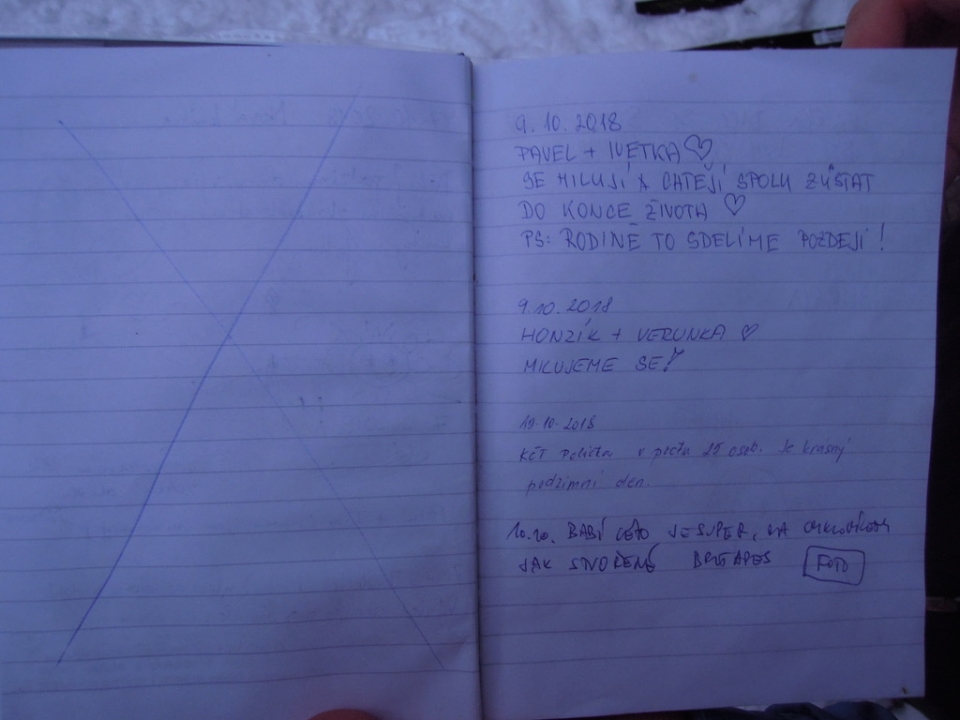 9.10.2018
PAVEL + IVETKA ♡
SE MILUJÍ A CHTĚJÍ SPOLU ZŮSTAT
DO KONCE ŽIVOTA ♡
PS: RODINĚ TO SDELÍME POZDEJI!
9.10.2018
HONZÍK + VERUNKA ♡
MILUJEME SE!
10.10.2018
KČT Polička v počtu 25 osob. Je krásný
podzimní den.
10.10. BABÍ LÉTO JE SUPER, NA
JAK STVOŘENÉ FOTO